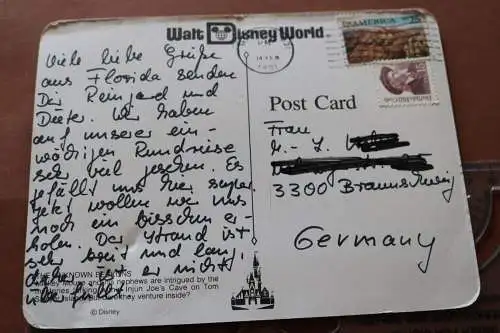 Walt Disney World
AMERICA 25
Viele liebe Grüße
aus Florida senden
Dir Reinhard und
Dieter. Wir haben
auf unserer ein-
wöchigen Rundreise
sehr viel gesehen. Es
gefällt uns hier super.
Jetzt wollen wir uns
noch ein bisschen er-
holen. Der Strand ist
sehr breit und lang,
daher er nicht
überfüllt
Post Card
Frau
3300 Braunschweig
Germany
KNOWN
Mickey Mouse and his nephews are intrigued by the
Injun Joe's Cave on Tom
they venture inside?
© Disney